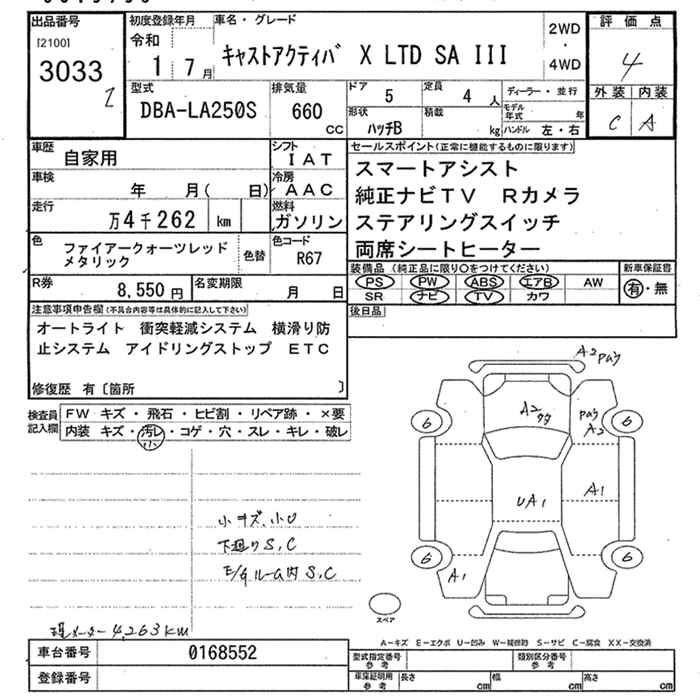 出品番号
[2100]
3033
2
初度登録年月
令和
1 7月
車名・グレード
キャストアクティバ X LTD SA III
2WD
・
4WD
評価点
4
外装 内装
C A
型式
DBA-LA250S
排気量
660
CC
ドア
5
定員
4 人
形状
ハッチB
積載
kg
ディーラー・並行
モデル年式 年
ハンドル 左・右
車歴
自家用
シフト
IAT
車検
年 月( 日)
冷房
AAC
走行
万4千262 km
燃料
ガソリン
色
ファイアークォーツレッド
メタリック
色替
色コード
R67
R券
8,550円
名変期限
月 日
セールスポイント(正常に機能するものに限ります)
スマートアシスト
純正ナビTV Rカメラ
ステアリングスイッチ
両席シートヒーター
装備品 (純正品に限り○をつけてください)
新車保証書
PS PW ABS エアB AW
SR ナビ TV カワ
有・無
後日品
注意事項申告欄(不具合内容等は具体的に記入して下さい)
オートライト 衝突軽減システム 横滑り防
止システム アイドリングストップ ETC
修復歴 有〔箇所 〕
検査員
記入欄
FW キズ・飛石・ヒビ割・リペア跡・×要
内装 キズ・汚レ・コゲ・穴・スレ・キレ・破レ
小
小キズ、小U
下廻りS,C
E/gルーム内S,C
現メーター4,263km
A2
A2
A2
6
6
6
6
UA1
A1
A1
スペア
A-キズ E-エクボ U-凹み W-補修跡 S-サビ C-腐食 XX-交換済
車台番号
0168552
登録番号
型式指定番号
参考
類別区分番号
参考
車庫証明用
参考
長さ cm
幅 cm
高さ cm